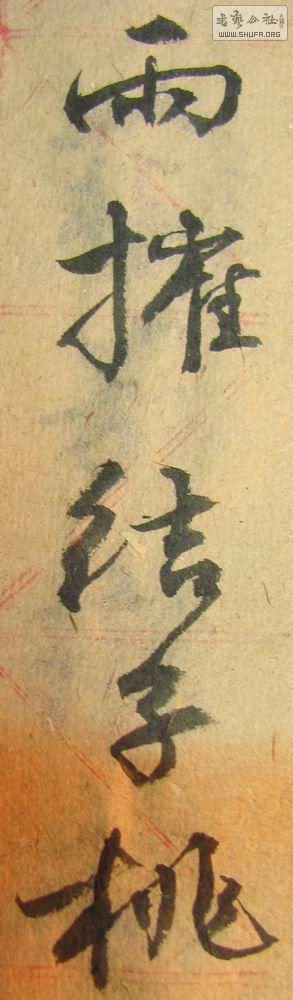 書藝公社
WWW.SHUFA.ORG
雨摧结子桃